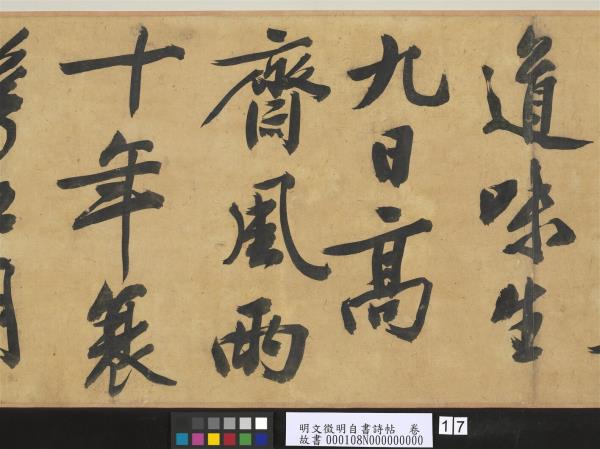 道味生
九日高
齋風雨
十年簑
明文徵明自書詩帖　卷
故書000108N000000000
17